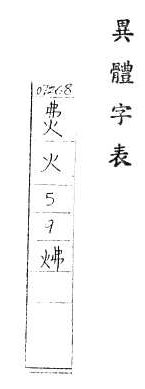 異體字表
07268
火
5
9
炥